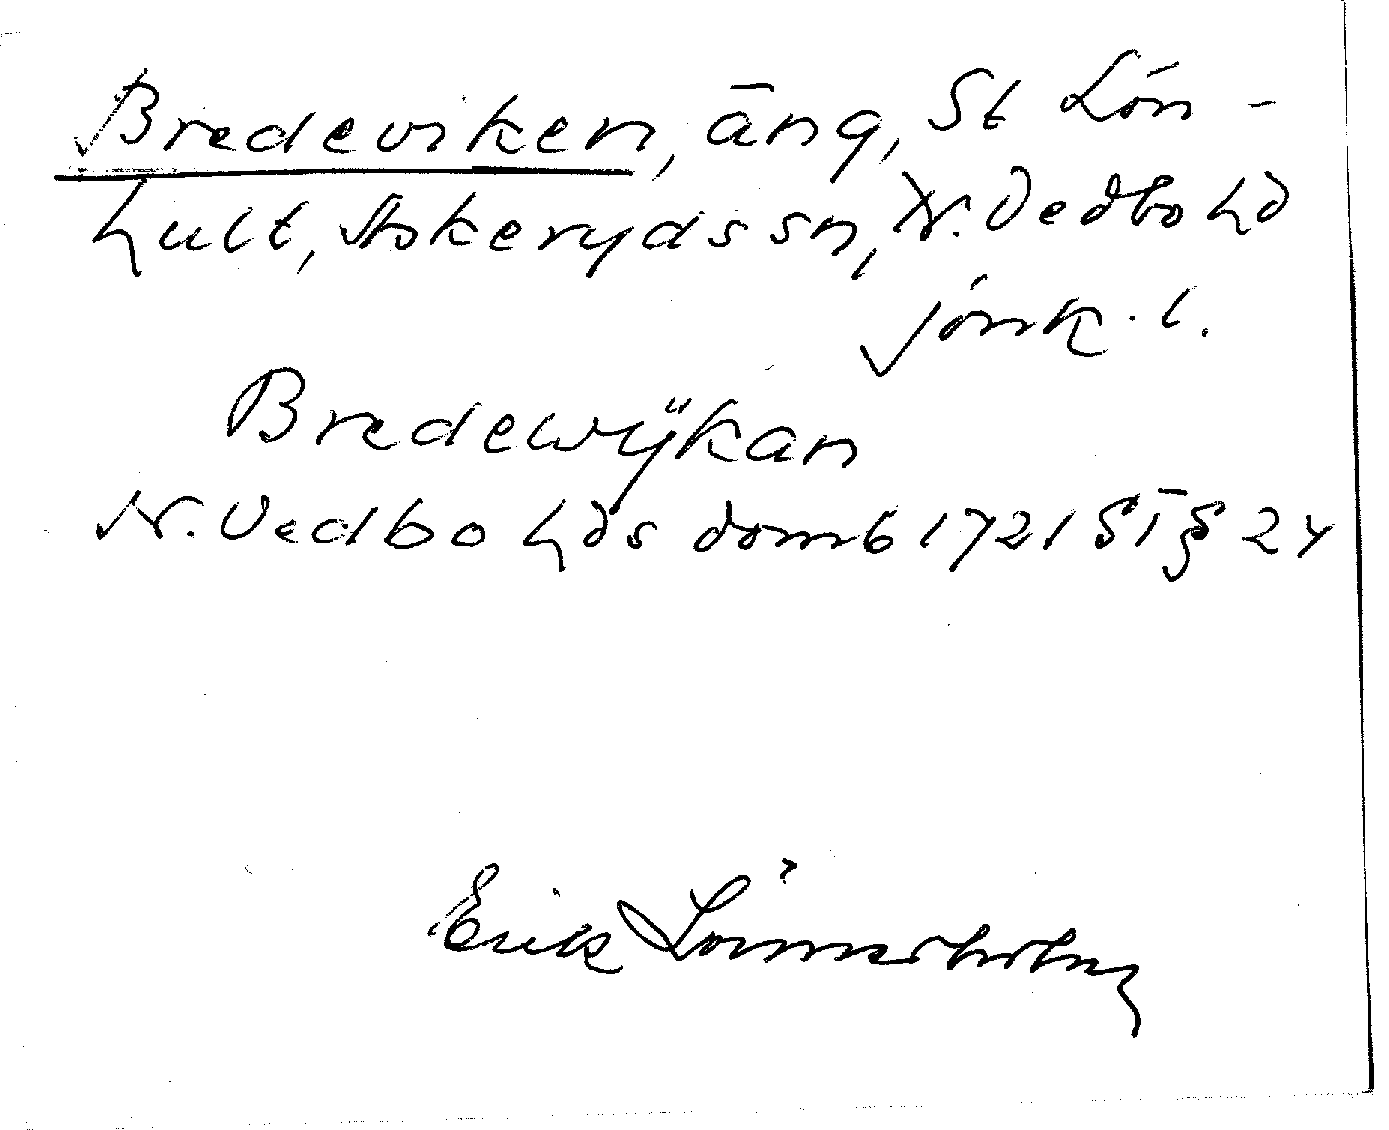 Bredeviken, äng, St Lön-
hult, Stokeryds sn, N. Vedbo hd
Jönk. l.
Bredewÿkan
N. Vedbo hds domb 1721 ST § 24
Erik